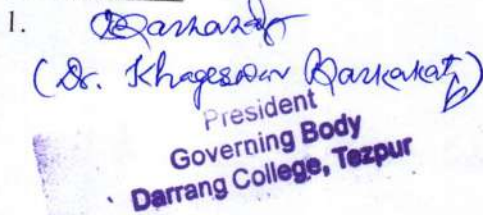 1.
(Dr. Khageswar Barkakaty)
President
Governing Body
Darrang College, Tezpur